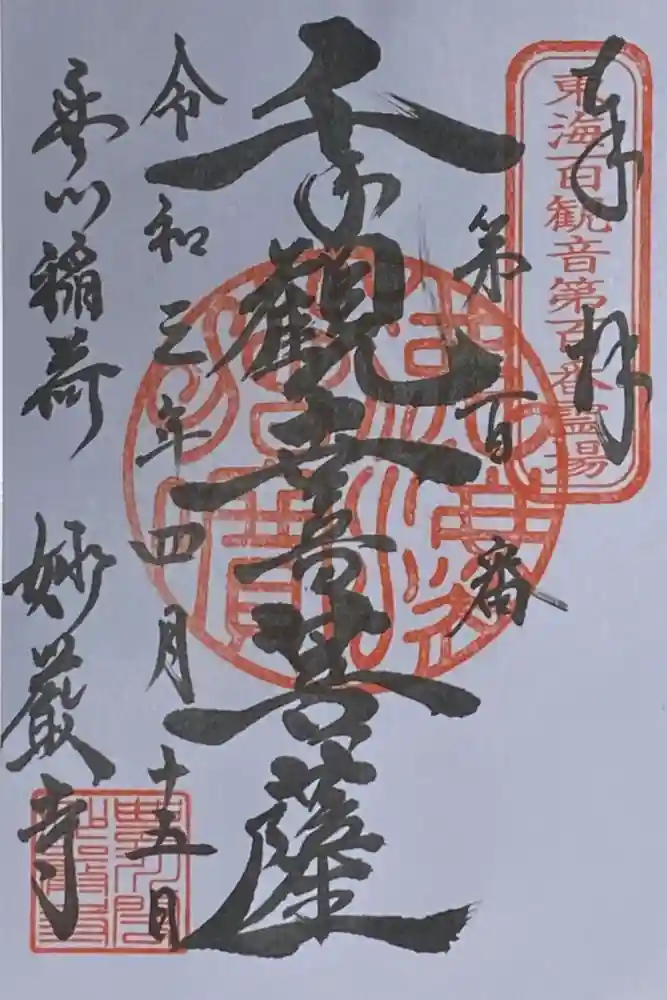 奉拝
東海百観音第百番霊場
第百番
千手觀世音菩薩
令和三年四月十五日
豊川稲荷 妙厳寺